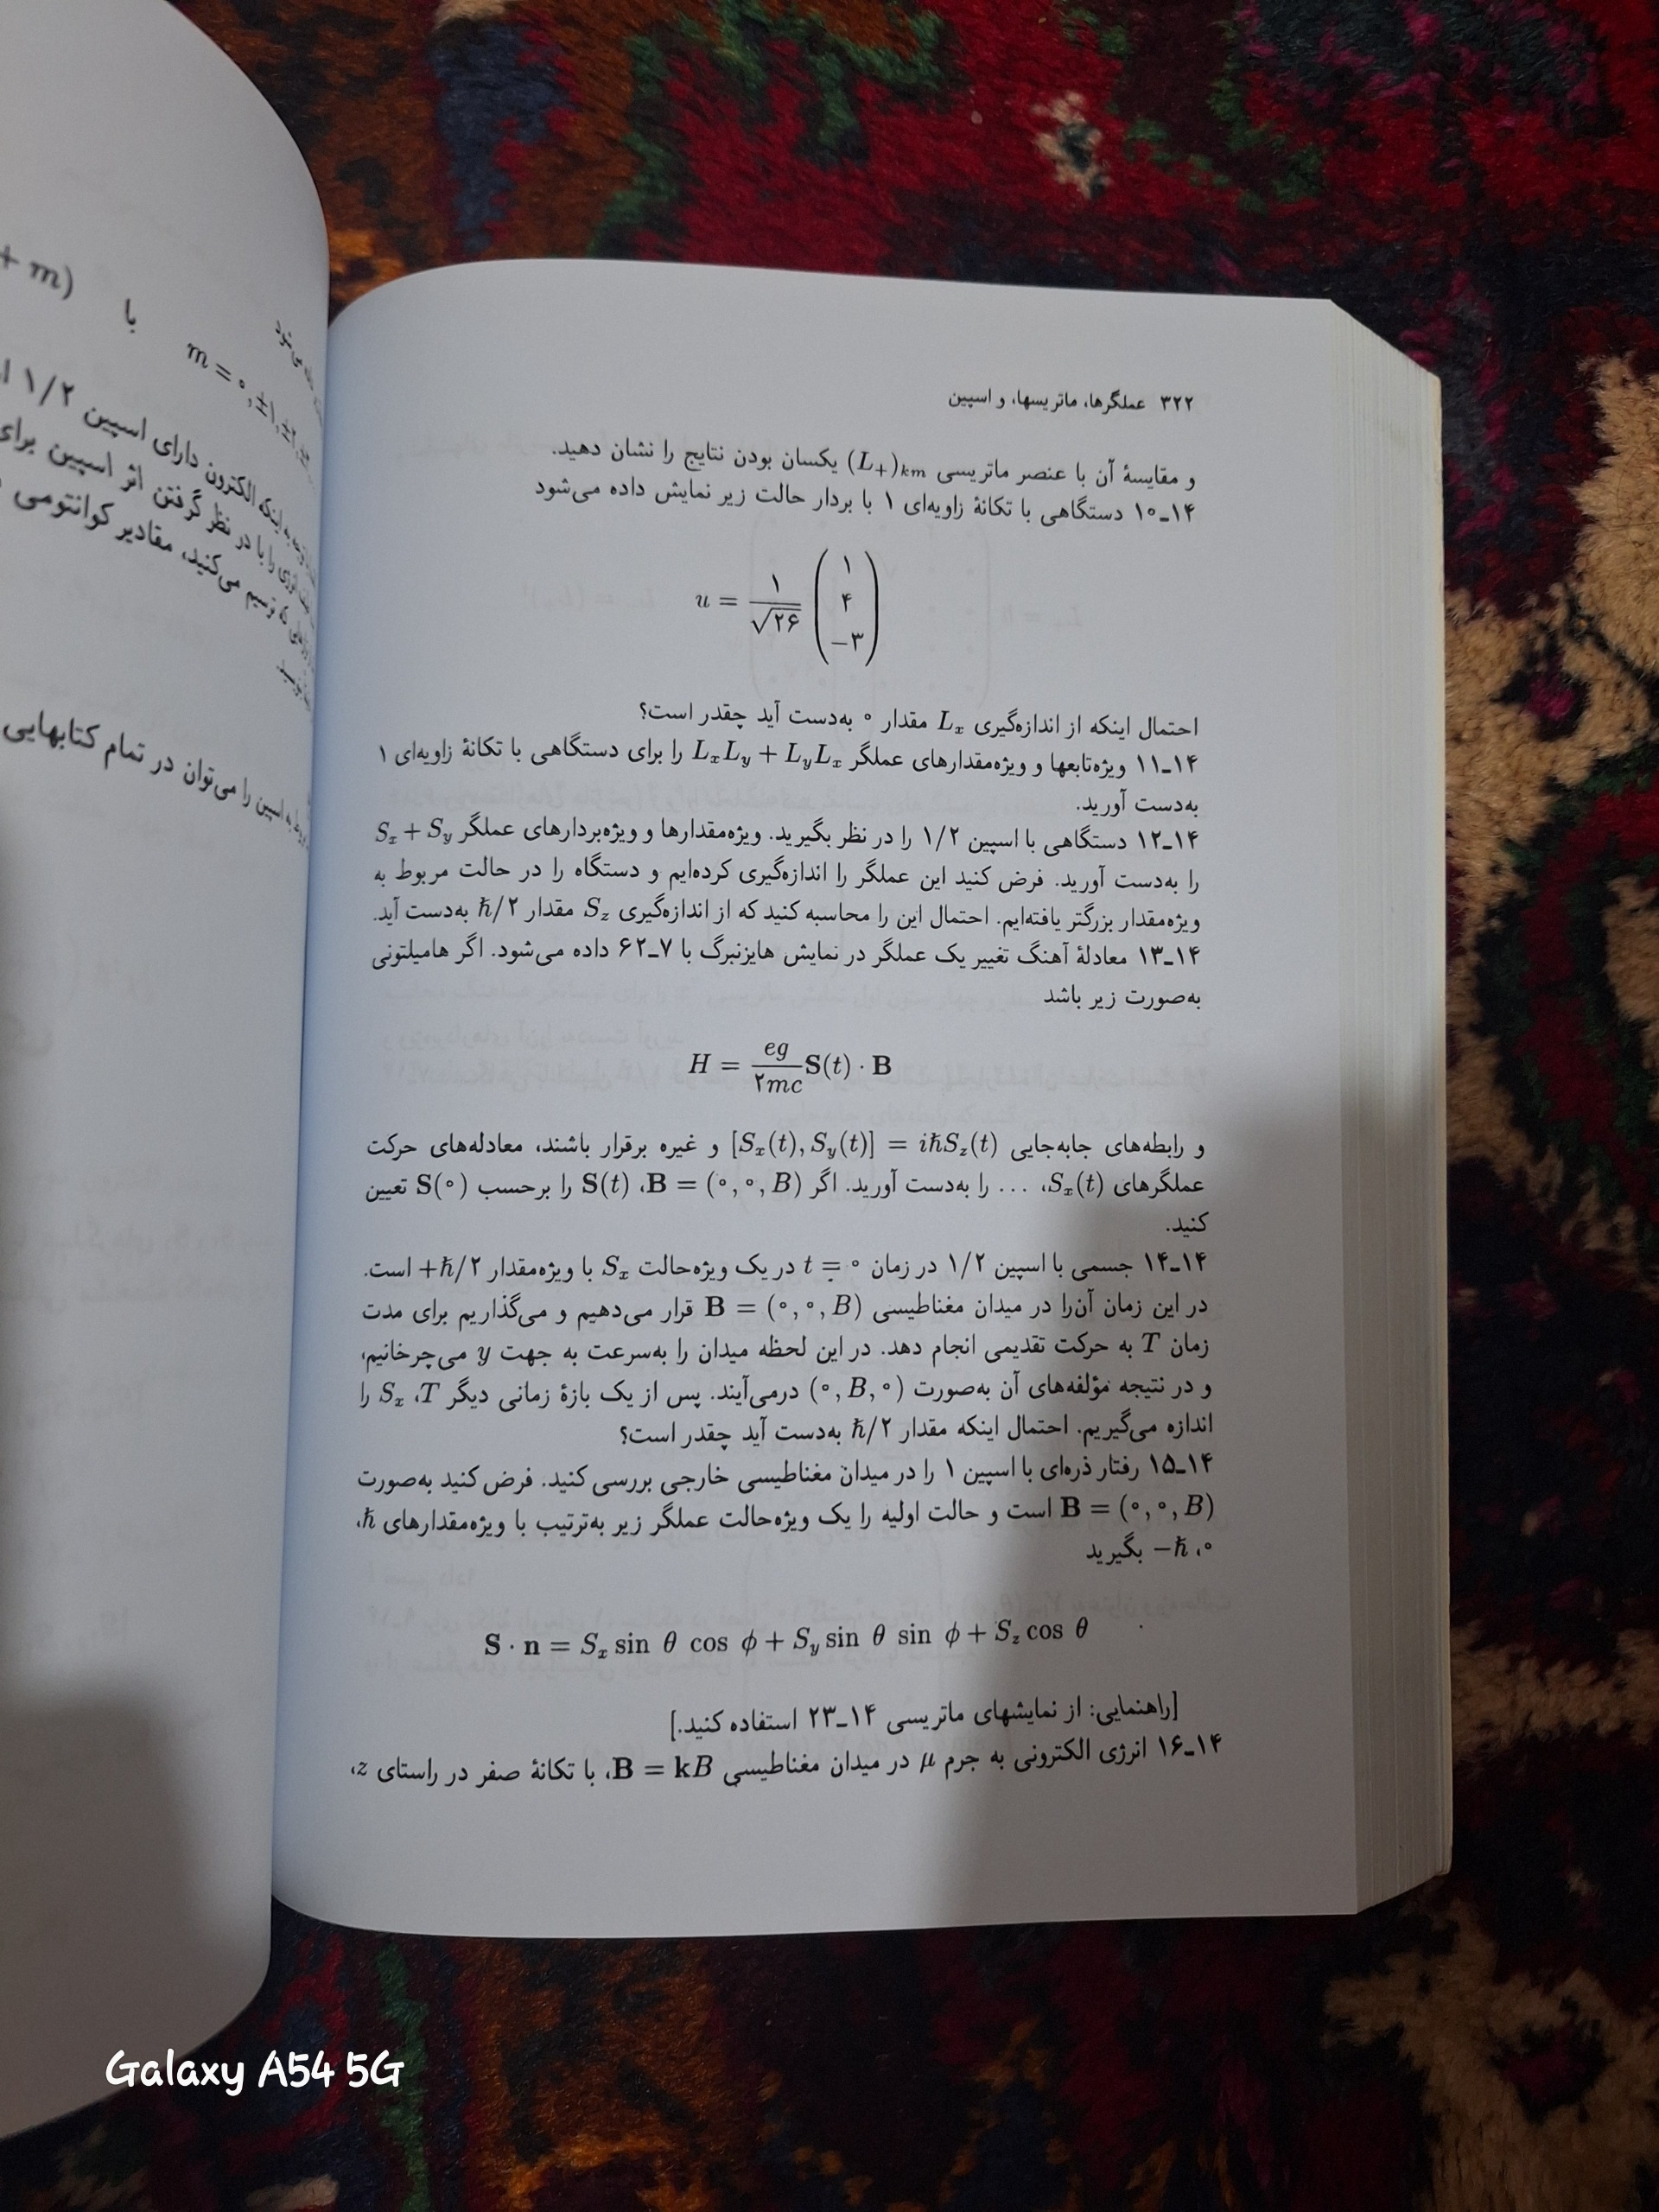 + m)
با
m = ۰, ±۱, ±
دارای اسپین ۱/۲
اینکه الکترون
را با در نظر گرفتن اثر اسپین برای
ترسیم می‌کنید، مقادیر کوانتومی
اسپین را می‌توان در تمام کتابهایی
۳۲۲ عملگرها، ماتریسها، و اسپین
و مقایسهٔ آن با عنصر ماتریسی (L₊)ₖₘ یکسان بودن نتایج را نشان دهید.
۱۴ـ۱۰ دستگاهی با تکانهٔ زاویه‌ای ۱ با بردار حالت زیر نمایش داده می‌شود
u = ۱/√۲۶ (۱ ۴ −۳)
احتمال اینکه از اندازه‌گیری Lₓ مقدار ۰ به‌دست آید چقدر است؟
۱۴ـ۱۱ ویژه‌تابعها و ویژه‌مقدارهای عملگر LₓL_y + L_yLₓ را برای دستگاهی با تکانهٔ زاویه‌ای ۱
به‌دست آورید.
۱۴ـ۱۲ دستگاهی با اسپین ۱/۲ را در نظر بگیرید. ویژه‌مقدارها و ویژه‌بردارهای عملگر Sₓ + S_y
را به‌دست آورید. فرض کنید این عملگر را اندازه‌گیری کرده‌ایم و دستگاه را در حالت مربوط به
ویژه‌مقدار بزرگتر یافته‌ایم. احتمال این را محاسبه کنید که از اندازه‌گیری S_z مقدار ħ/۲ به‌دست آید.
۱۴ـ۱۳ معادلهٔ آهنگ تغییر یک عملگر در نمایش هایزنبرگ با ۷ـ۶۲ داده می‌شود. اگر هامیلتونی
به‌صورت زیر باشد
H = eg/۲mc S(t) · B
و رابطه‌های جابه‌جایی [Sₓ(t), S_y(t)] = iħS_z(t) و غیره برقرار باشند، معادله‌های حرکت
عملگرهای Sₓ(t)، ... را به‌دست آورید. اگر B = (۰, ۰, B)، S(t) را برحسب S(۰) تعیین
کنید.
۱۴ـ۱۴ جسمی با اسپین ۱/۲ در زمان t = ۰ در یک ویژه‌حالت Sₓ با ویژه‌مقدار +ħ/۲ است.
در این زمان آن‌را در میدان مغناطیسی B = (۰, ۰, B) قرار می‌دهیم و می‌گذاریم برای مدت
زمان T به حرکت تقدیمی انجام دهد. در این لحظه میدان را به‌سرعت به جهت y می‌چرخانیم،
و در نتیجه مؤلفه‌های آن به‌صورت (۰, B, ۰) درمی‌آیند. پس از یک بازهٔ زمانی دیگر T، Sₓ را
اندازه می‌گیریم. احتمال اینکه مقدار ħ/۲ به‌دست آید چقدر است؟
۱۴ـ۱۵ رفتار ذره‌ای با اسپین ۱ را در میدان مغناطیسی خارجی بررسی کنید. فرض کنید به‌صورت
B = (۰, ۰, B) است و حالت اولیه را یک ویژه‌حالت عملگر زیر به‌ترتیب با ویژه‌مقدارهای ħ،
۰، −ħ بگیرید
S · n = Sₓ sin θ cos ϕ + S_y sin θ sin ϕ + S_z cos θ
[راهنمایی: از نمایشهای ماتریسی ۱۴ـ۲۳ استفاده کنید.]
۱۴ـ۱۶ انرژی الکترونی به جرم μ در میدان مغناطیسی B = kB، با تکانهٔ صفر در راستای z،
Galaxy A54 5G